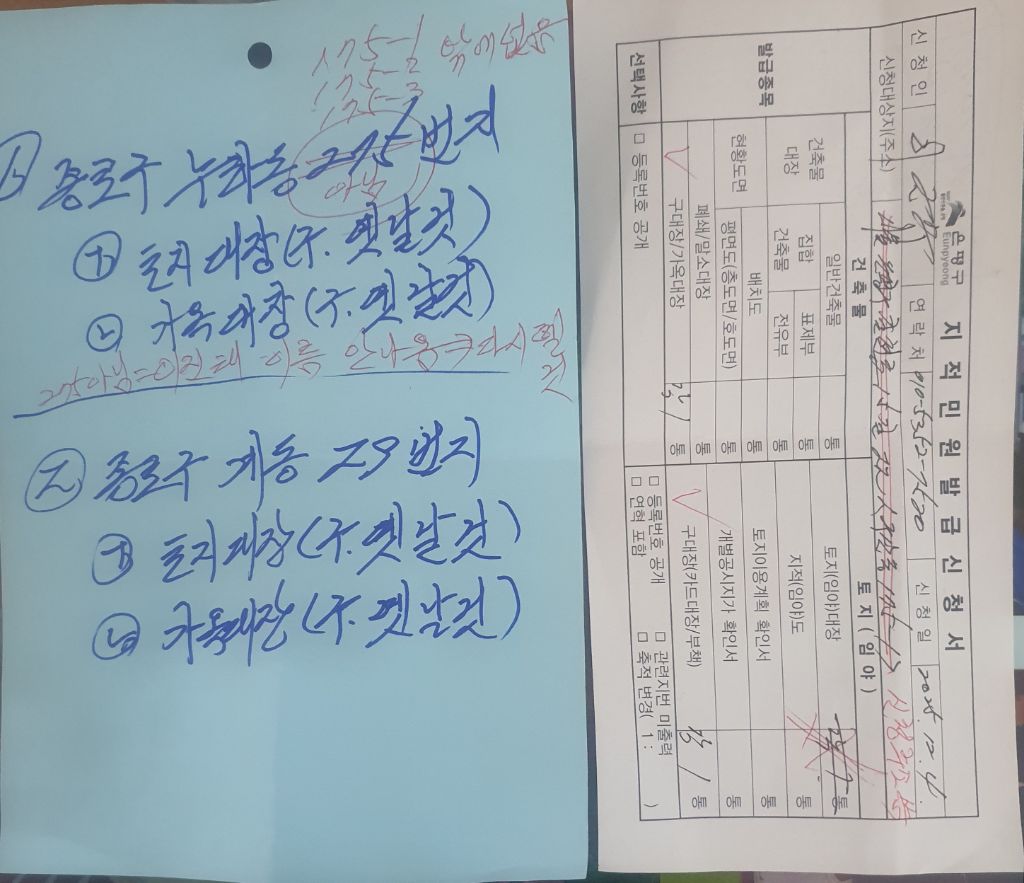 175-1 앞에 넣음
175-2
175-3
1 종로구 누하동 275 번지
아님
ㄱ 토지대장 (구. 옛날것)
ㄴ 가옥대장 (구. 옛날것)
이름 안나옴 다시 뗄것
2 종로구 계동 79 번지
ㄱ 토지대장 (구. 옛날것)
ㄴ 가옥대장 (구. 옛날것)
은평구
Eunpyeong
지적민원발급신청서
신청인 연락처 010-5352-7500 신청일 2025. 12. 4.
신청대상지(주소)
발급종목 건축물 토지(임야)
건축물대장 일반건축물 통 토지(임야)대장 통
집합건축물 표제부 통 지적(임야)도 통
전유부 통 토지이용계획 확인서 통
현황도면 배치도 통 개별공시지가 확인서 통
평면도(층도면/호도면) 통 구대장(카드대장/부책) 각 1 통
폐쇄/말소대장 통
구대장/가옥대장 각 1 통
선택사항 □ 등록번호 공개 □ 등록번호 공개 □ 관련지번 미출력
□ 연혁 포함 □ 축척 변경( 1 : )